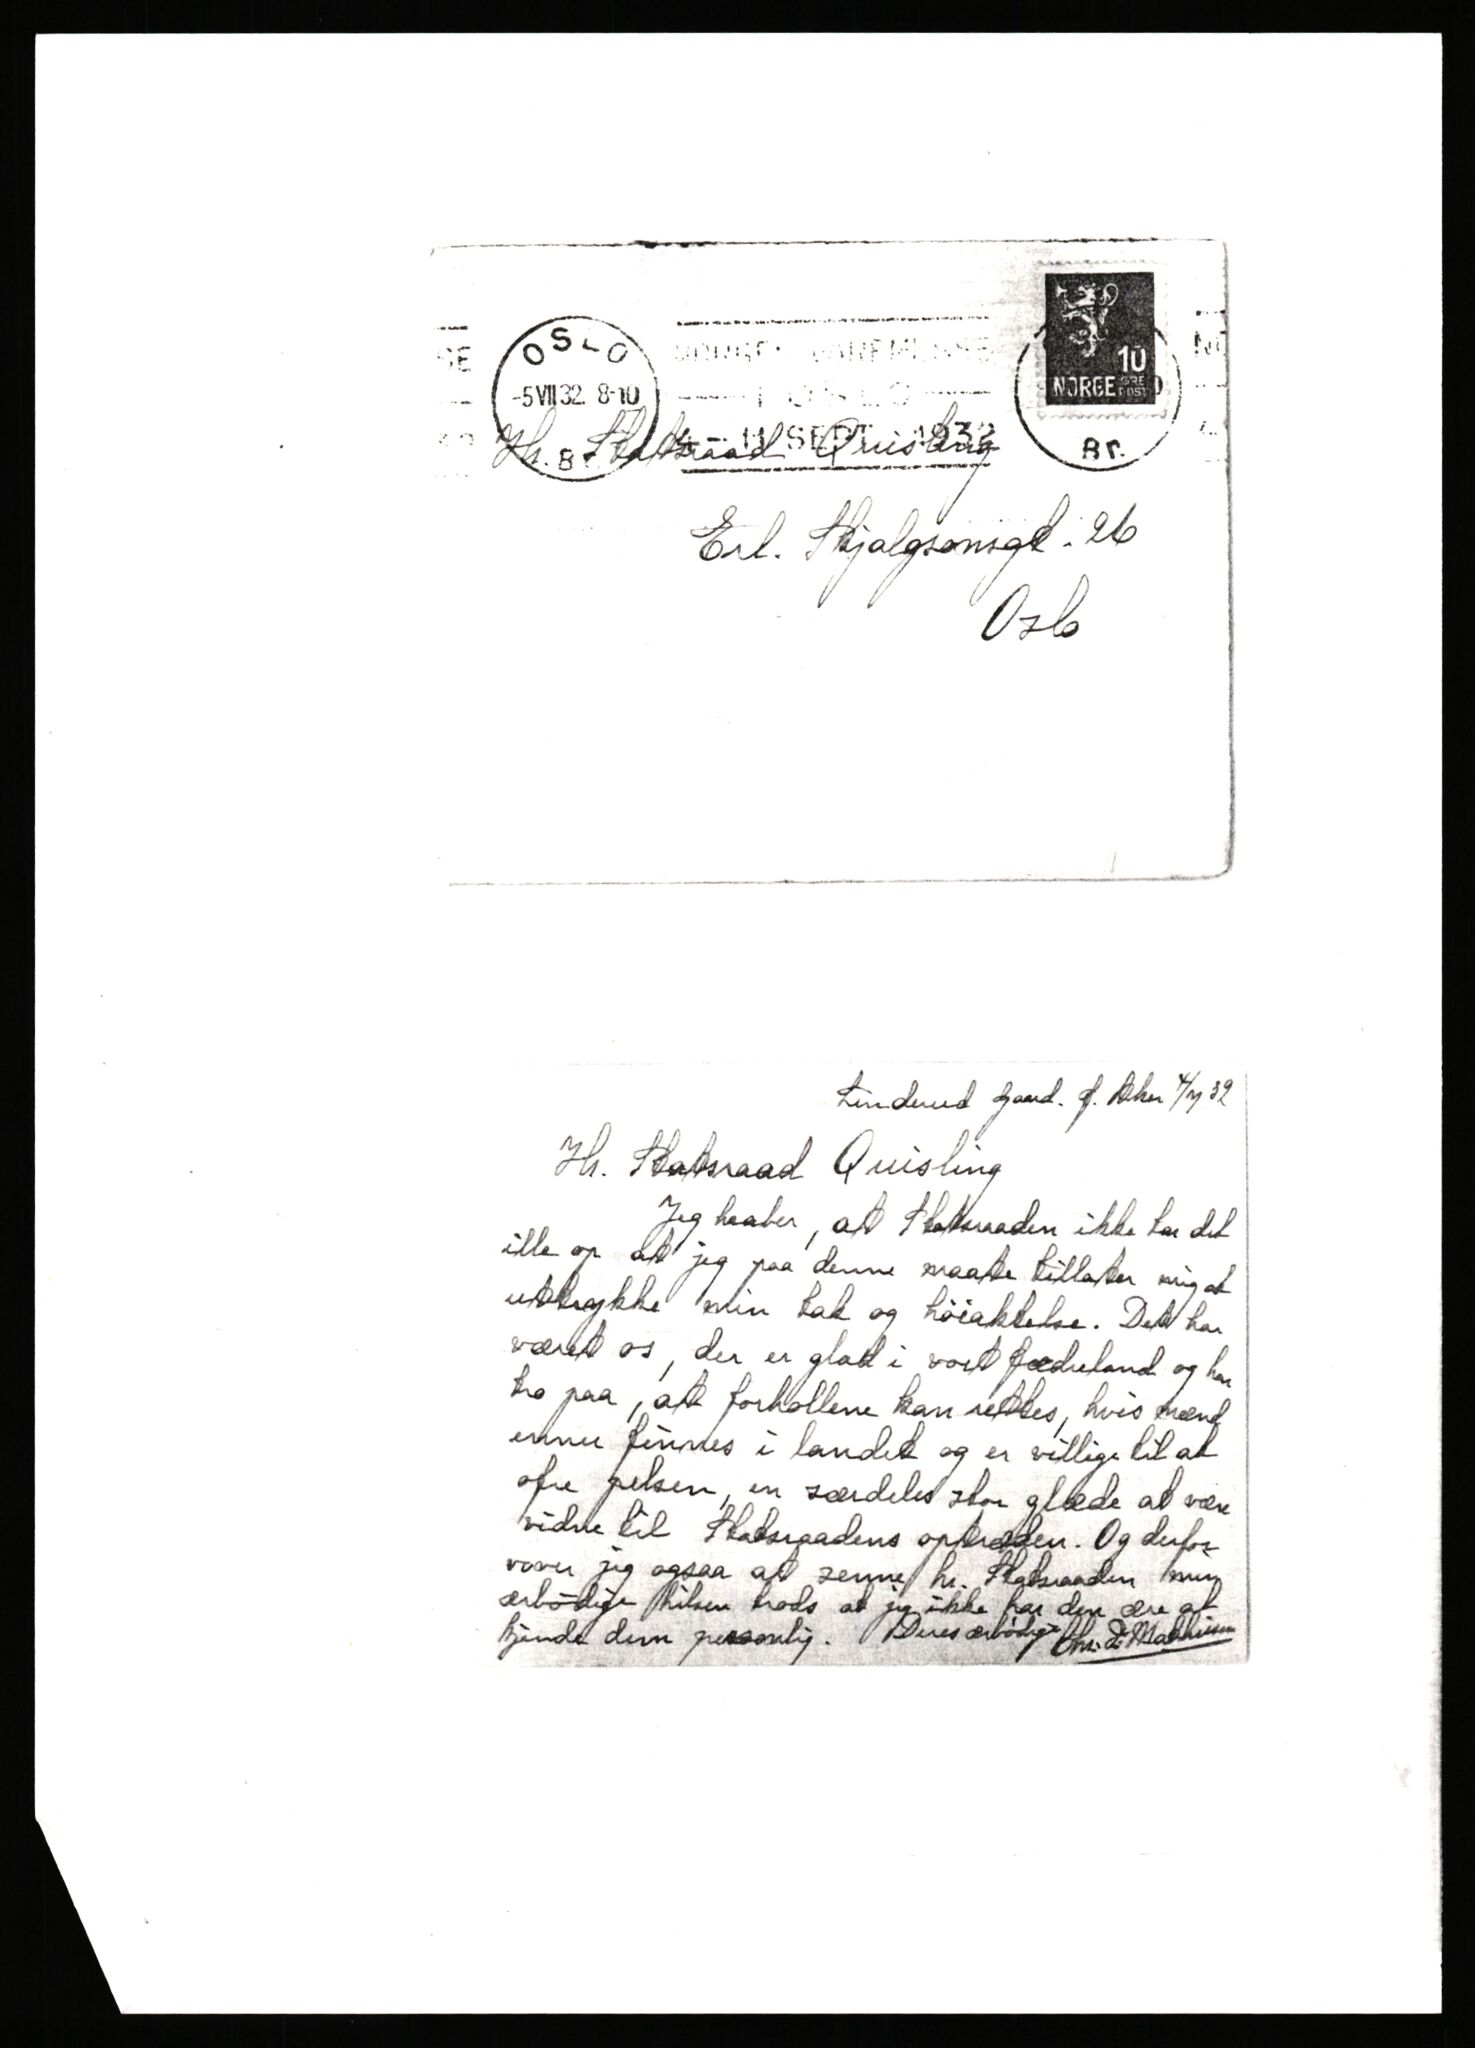 OSLO
-5 VII 32. 8-10
Br.
NORGES VAREMESSE
I OSLO
4 - 11 SEPT. 1932
10
NORGE ØRE POST
Br.
SE
32
Hr. Statsraad Quisling
Erl. Skjalgsønsgt. 26
Oslo
Linderud gaard. Ø. Aker 4/7 32
Hr. Statsraad Quisling
Jeg haaber, at Statsraaden ikke tar det
ille op at jeg paa denne maate tillater mig at
uttrykke min tak og höiaktelse. Det har
været os, der er glad i vort fædreland og har
tro paa, at forhollene kan rettes, hvis mænd
ennu finnes i landet og er villige til at
ofre pelsen, en særdeles stor glæde at være
vidne til Statsraadens optræden. Og derfor
vover jeg ogsaa at senne hr. Statsraaden min
ærbödige hilsen trods at jeg ikke har den ære at
kjende dem personlig. Deres ærbödige
Chr. Mathiesen